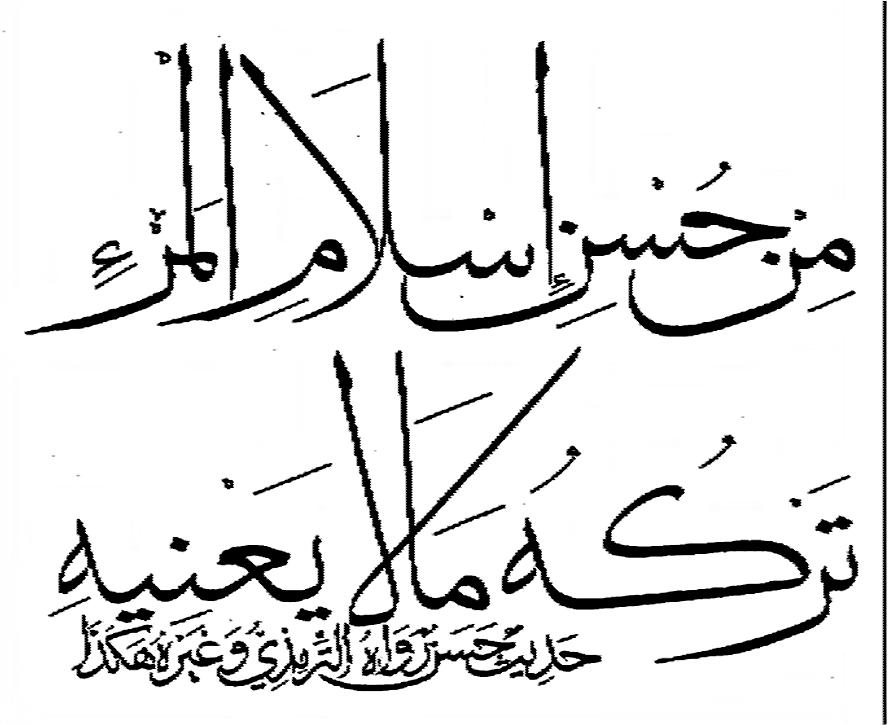 مِنْ حُسْنِ إِسْلَامِ الْمَرْءِ
تَرْكُهُ مَا لَا يَعْنِيهِ
حَدِيثٌ حَسَنٌ رَوَاهُ التِّرْمِذِيُّ وَغَيْرُهُ هَكَذَا